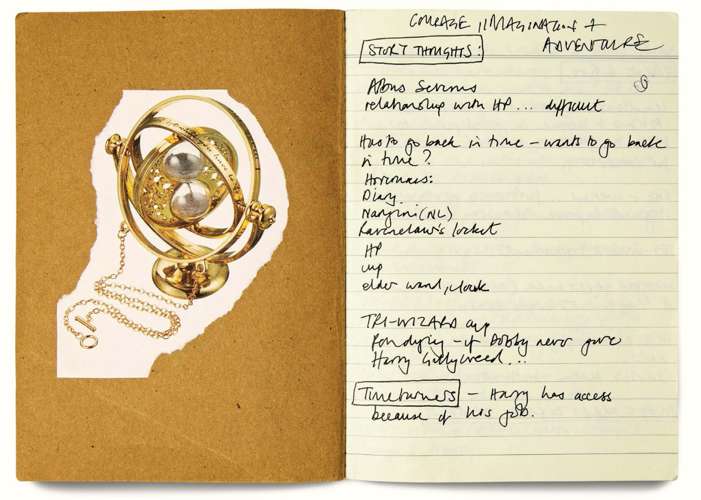 COURAGE, IMAGINATION +
ADVENTURE
STORY THOUGHTS:
Albus Severus
relationship with HP... difficult
Has to go back in time - wants to go back
in time?
Horcruxes:
Diary.
Nangini (NL)
Ravenclaw's locket
HP
cup
elder wand, cloak
TRI-WIZARD cup
- if Dobby never gave
Harry Gillyweed...
Timeturners - Harry has access
because of his job.